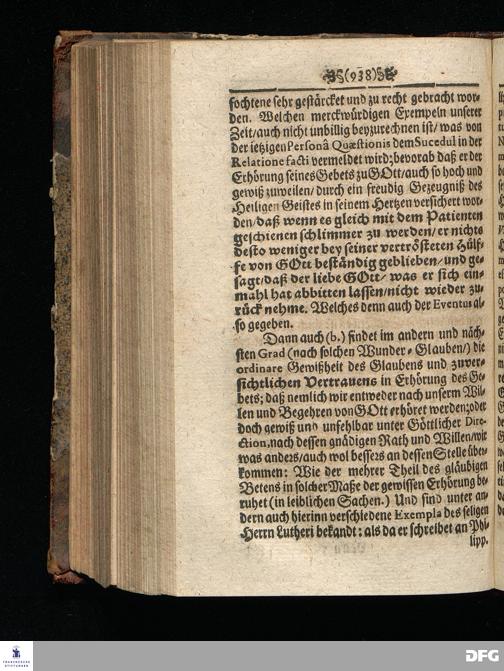 (938)
fochtene sehr gestärcket und zu recht gebracht wor-
den. Welchen merckwürdigen Exempeln unserer
Zeit/auch nicht unbillig beyzurechnen ist/ was von
der ietzigen Personâ Quæstionis dem Sucedul in der
Relatione facti vermeldet wird; bevorab daß er der
Erhörung seines Gebets zu GOtt/auch so hoch und
gewiß zuweilen/ durch ein freudig Gezeugniß des
Heiligen Geistes in seinem Hertzen versichert wor-
den/daß wenn es gleich mit dem Patienten
geschienen schlimmer zu werden/er nichts
desto weniger bey seiner vertrösteten Hülf-
fe von GOtt beständig geblieben/und ge-
sagt/daß der liebe GOtt/ was er sich ein-
mahl hat abbitten lassen/nicht wieder zu-
rück nehme. Welches denn auch der Eventus al-
so gegeben.
Dann auch (b.) findet im andern und näch-
sten Grad (nach solchen Wunder-Glauben/) die
ordinare Gewißheit des Glaubens und zuver-
sichtlichen Vertrauens in Erhörung des Ge-
bets; daß nemlich wir entweder nach unserm Wil-
len und Begehren von GOtt erhöret werden; oder
doch gewiß und unfehlbar unter Göttlicher Dire-
ction, nach dessen gnädigen Rath und Willen/wir
was anders/auch wol bessers an dessen Stelle über-
kommen: Wie der mehrer Theil des gläubigen
Betens in solcher Maße der gewissen Erhörung be-
ruhet (in leiblichen Sachen.) Und sind unter an-
dern auch hierinn verschiedene Exempla des seligen
Herrn Lutheri bekandt: als da er schreibet an Phi-
lipp.
FRANCKESCHE
STIFTUNGEN
DFG